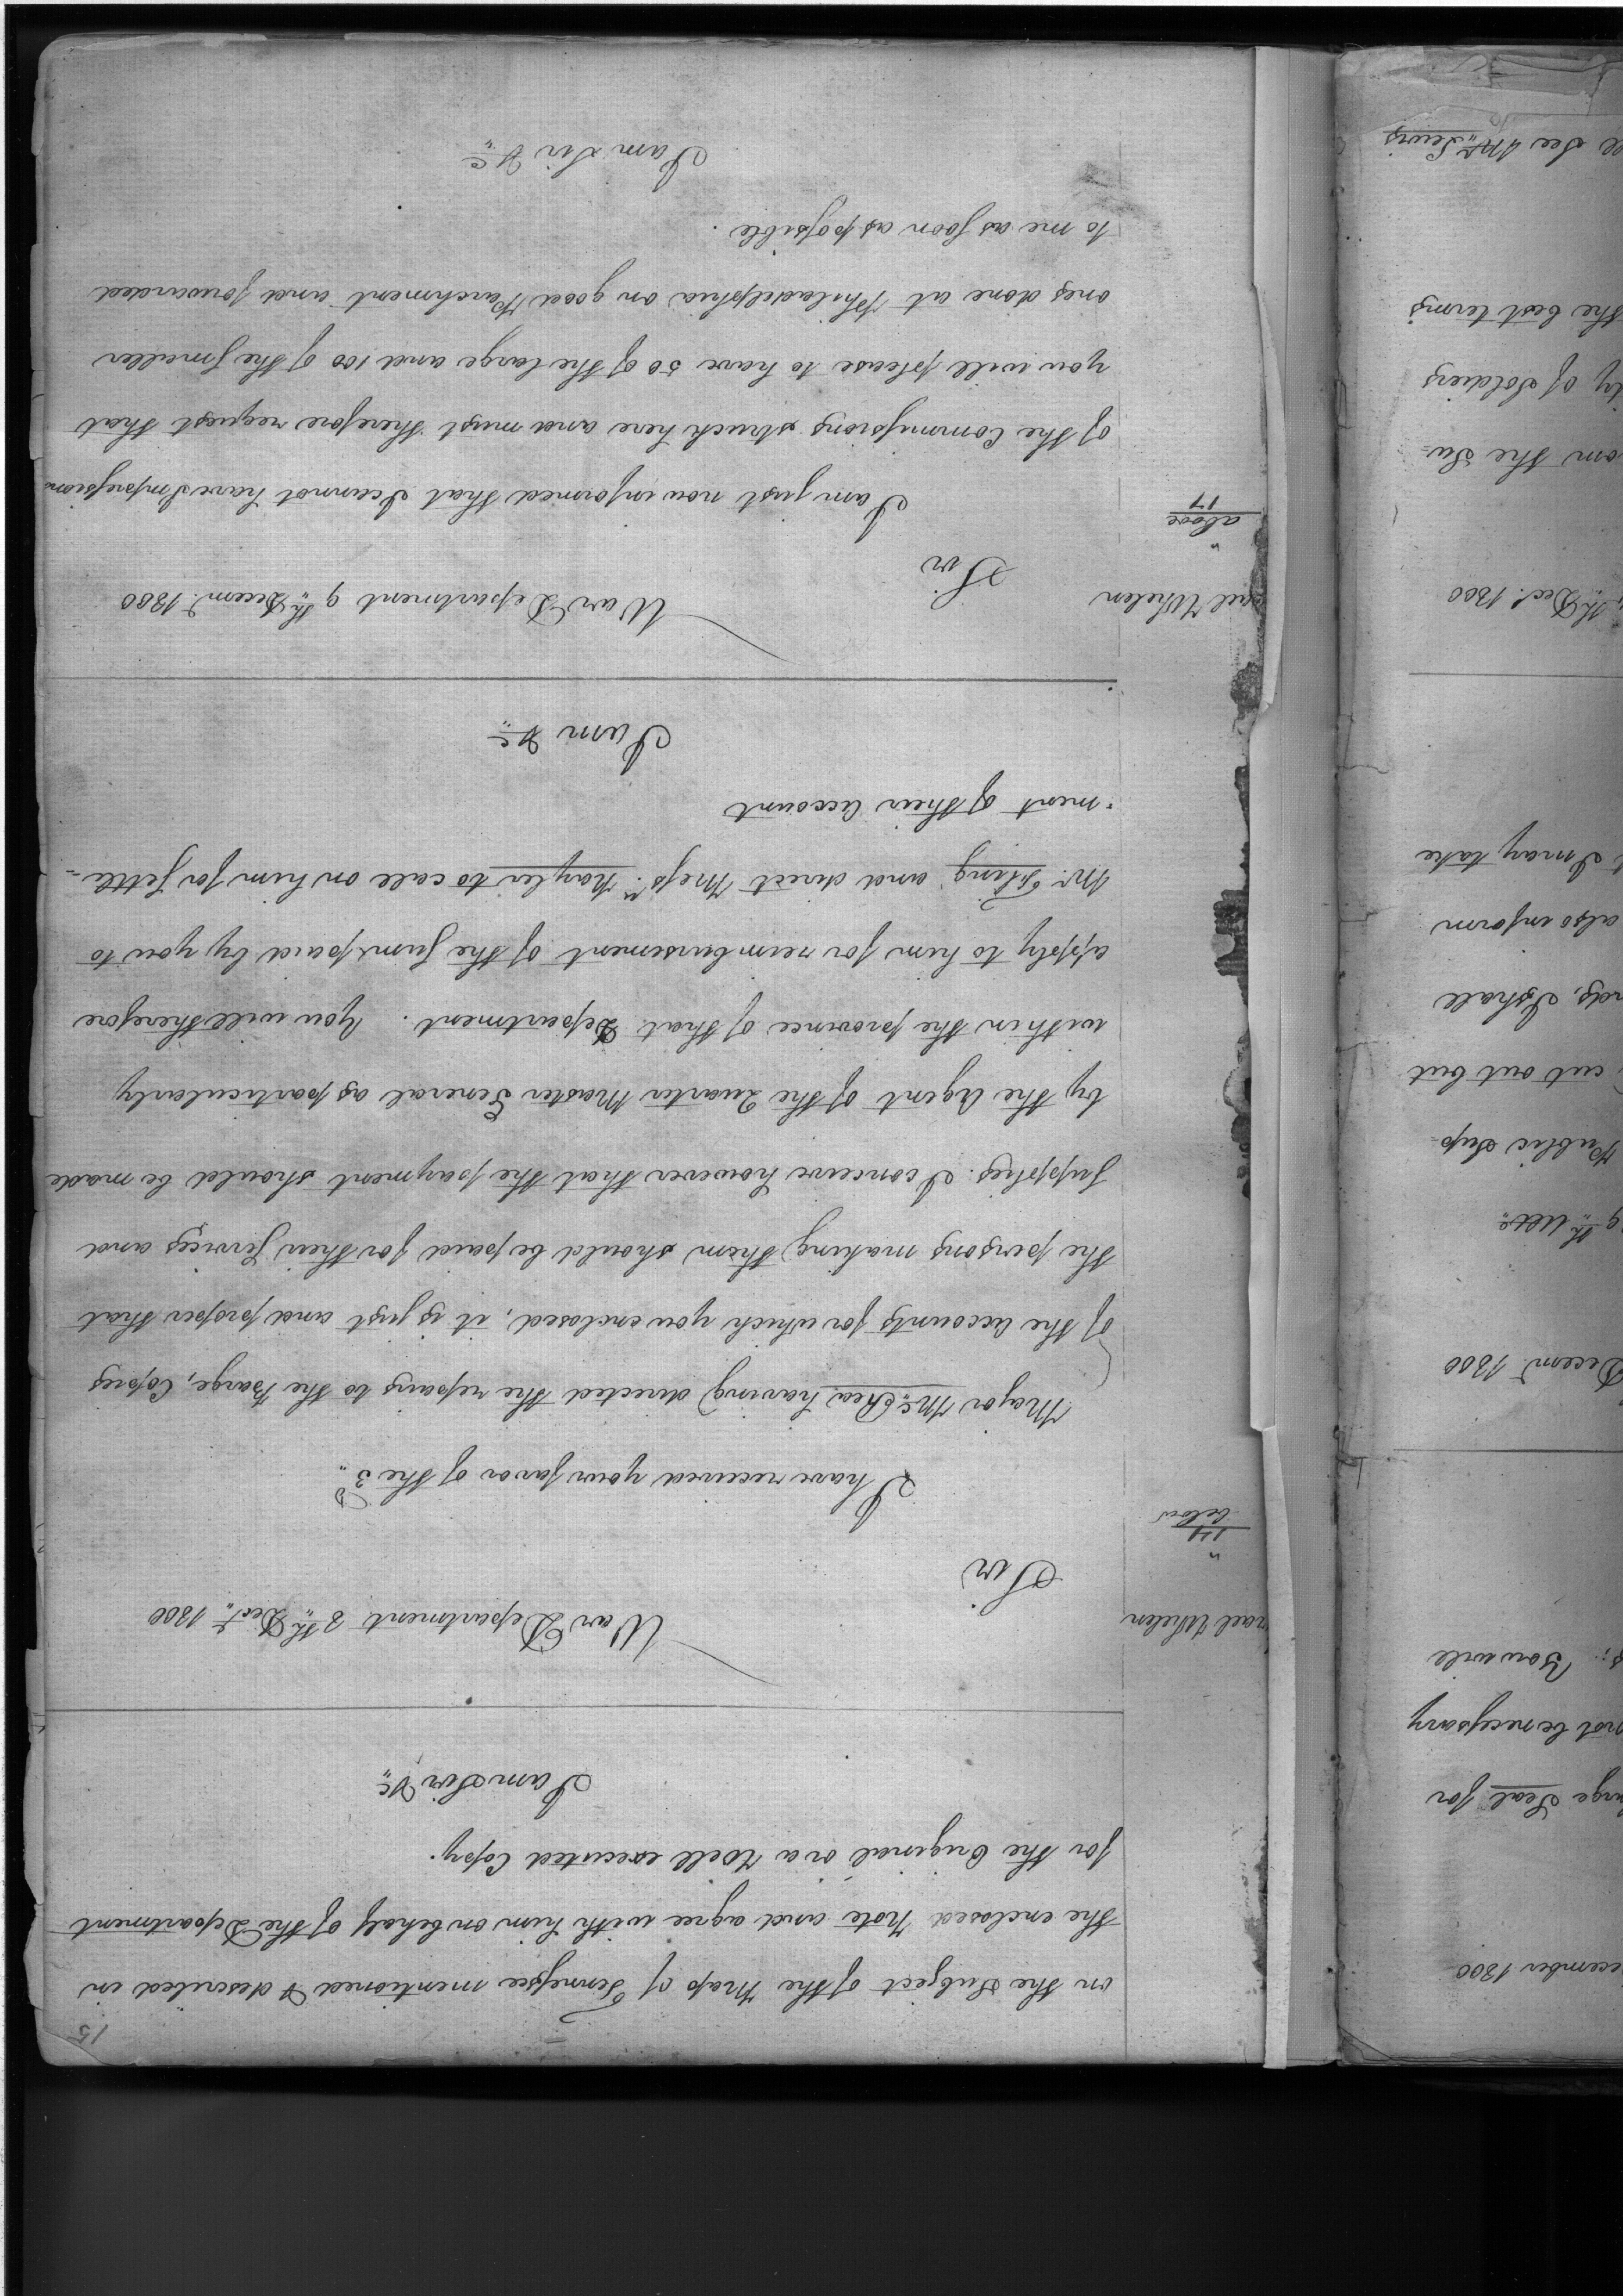 15
on the Subject of the Map of Tennessee mentioned & described in
the enclosed Note and agree with him on behalf of the Department
for the Original or a Well executed Copy.
I am Sir &c
War Department 8th Decr. 1800
Whelen
17
below
Sir
I have received your favor of the 3d
Major McRea having directed the repairs to the Barge, Copies
of the accounts for which you enclosed, it is just and proper that
the persons making them should be paid for their Services and
Supplies. I conceive however that the payment should be made
by the Agent of the Quarter Master General as particularly
within the province of that Department. You will therefore
apply to him for reimbursement of the Sum paid by you to
Mr. and direct Messrs. Naylor to call on him for settle-
-ment of their account
I am &c
War Department 9th Decemr. 1800
Whelen
above
17
Sir
I am just now informed that I cannot have Impressions
of the Commissions struck here and must therefore request that
you will please to have 50 of the large and 100 of the Smaller
ones done at Philadelphia on good Parchment and forwarded
to me as soon as possible.
I am Sir &c
ecember 1800
Seal for
not be necessary
You will
Decemr. 1800
9th Ulto.
Public Sup-
cut out but
I shall
also inform
I may take
th Decr. 1800
om the Su-
of Soldiers
the best terms
See Mr. Lewis